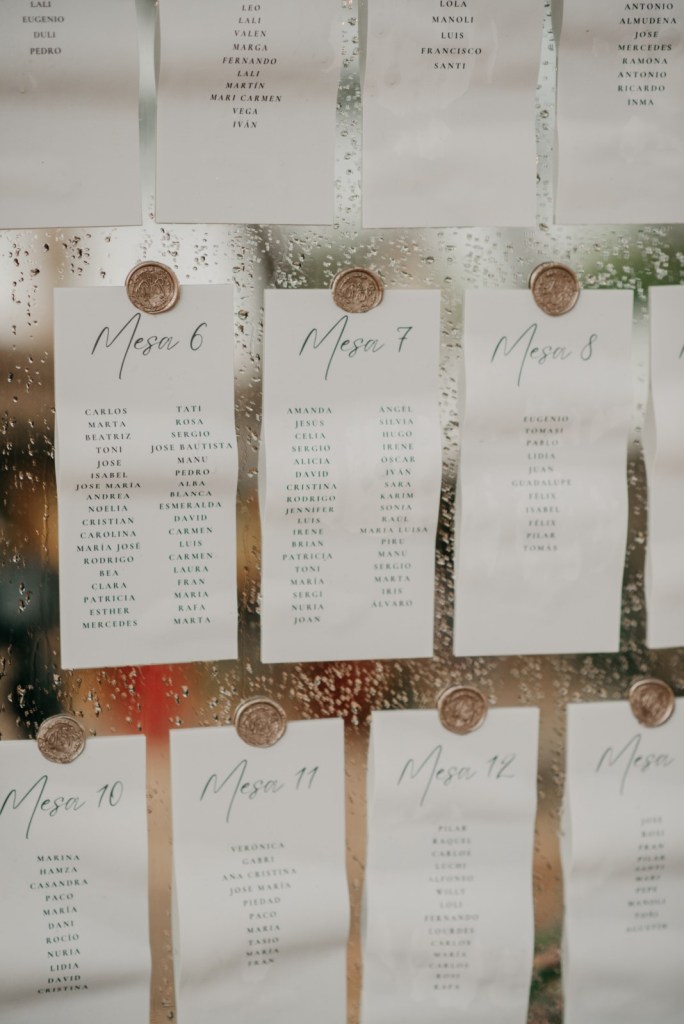 LALI
EUGENIO
DULI
PEDRO
LEO
LALI
VALEN
MARGA
FERNANDO
LALI
MARTÍN
MARI CARMEN
VEGA
IVÁN
LOLA
MANOLI
LUIS
FRANCISCO
SANTI
ANTONIO
ALMUDENA
JOSE
MERCEDES
RAMONA
ANTONIO
RICARDO
INMA
Mesa 6
CARLOS
MARTA
BEATRIZ
TONI
JOSE
ISABEL
JOSE MARIA
ANDREA
NOELIA
CRISTIAN
CAROLINA
MARÍA JOSÉ
RODRIGO
BEA
CLARA
PATRICIA
ESTHER
MERCEDES
TATI
ROSA
SERGIO
JOSE BAUTISTA
MANU
PEDRO
ALBA
BLANCA
ESMERALDA
DAVID
CARMEN
LUIS
CARMEN
LAURA
FRAN
MARIA
RAFA
MARTA
Mesa 7
AMANDA
JESÚS
CELIA
SERGIO
ALICIA
DAVID
CRISTINA
RODRIGO
JENNIFER
LUIS
IRENE
BRIAN
PATRICIA
TONI
MARÍA
SERGI
NURIA
JOAN
ÁNGEL
SILVIA
HUGO
IRENE
ÓSCAR
IVÁN
SARA
KARIM
SONIA
RAÚL
MARIA LUISA
PIRU
MANU
SERGIO
MARTA
IRIS
ÁLVARO
Mesa 8
EUGENIO
TOMASI
PABLO
LIDIA
JUAN
GUADALUPE
FÉLIX
ISABEL
FÉLIX
PILAR
TOMÁS
Mesa 10
MARINA
HAMZA
CASANDRA
PACO
MARÍA
DANI
ROCÍO
NURIA
LIDIA
DAVID
CRISTINA
Mesa 11
VERÓNICA
GABRI
ANA CRISTINA
JOSE MARÍA
PIEDAD
PACO
MARIA
TASIO
MARÍA
FRAN
Mesa 12
PILAR
RAQUEL
CARLOS
LUCHI
ALFONSO
WILLY
LOLI
FERNANDO
LOURDES
CARLOS
MARIA
CARLOS
ROSI
RAFA
Mesa
JOSE
ROSI
FRAN
PILAR
PEPE
MANOLI
TONI
AGUSTÍN